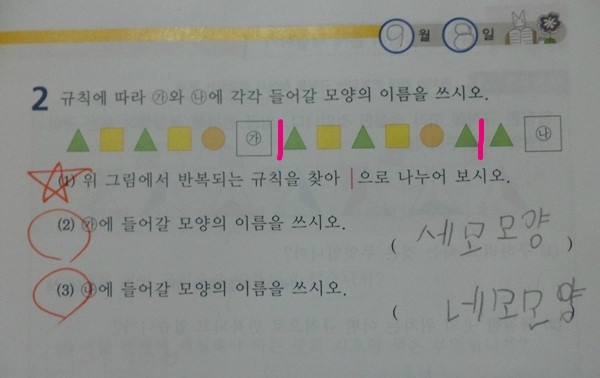 9월 8일
2 규칙에 따라 ㉮와 ㉯에 각각 들어갈 모양의 이름을 쓰시오.
㉮ ㉯
(1) 위 그림에서 반복되는 규칙을 찾아 |으로 나누어 보시오.
(2) ㉮에 들어갈 모양의 이름을 쓰시오.
( 세모모양 )
(3) ㉯에 들어갈 모양의 이름을 쓰시오.
( 네모모양